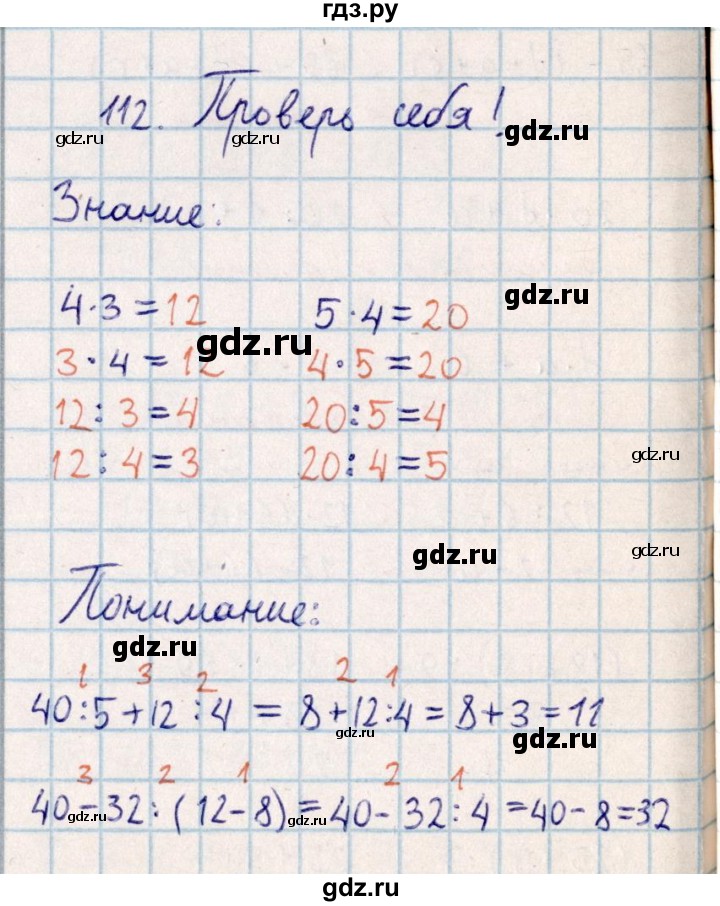 гдз.ру
112. Проверь себя!
gdz.ru gdz.ru gdz.ru
Знание:
gdz.ru
4·3=12 5·4=20
gdz.ru
3·4=12 4·5=20
12:3=4 20:5=4
gdz.ru
12:4=3 20:4=5
gdz.ru gdz.ru
Понимание:
gdz.ru
1 3 2 2 1
40:5+12:4=8+12:4=8+3=11
gdz.ru gdz.ru
3 2 1 2 1
40-32:(12-8)=40-32:4=40-8=32
gdz.ru gdz.ru gdz.ru
gdz.ru